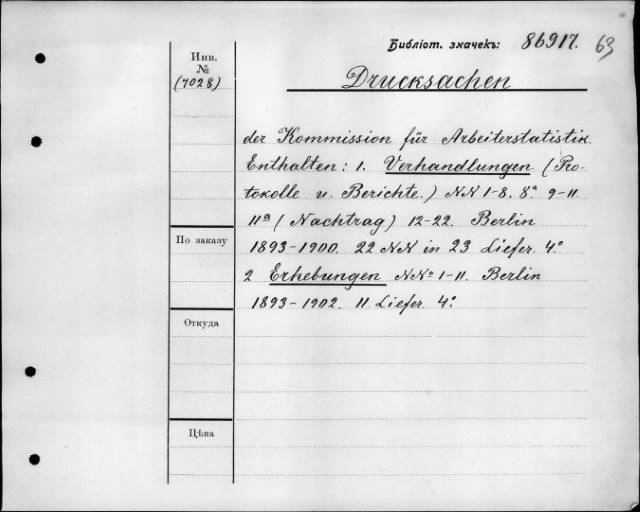 Библіот. значекъ: 86917. 63
Инв.
№
(7028)
Drucksachen
der Kommission für Arbeiterstatistik.
Enthalten: 1. Verhandlungen (Pro-
tokolle u. Berichte.) NN 1-8. 8ª 9-11
11ª (Nachtrag) 12-22. Berlin
1893-1900. 22 NN in 23 Liefer. 4°
2 Erhebungen NNº 1-11. Berlin
1893-1902. 11 Liefer. 4°
По заказу
Откуда
Цѣна